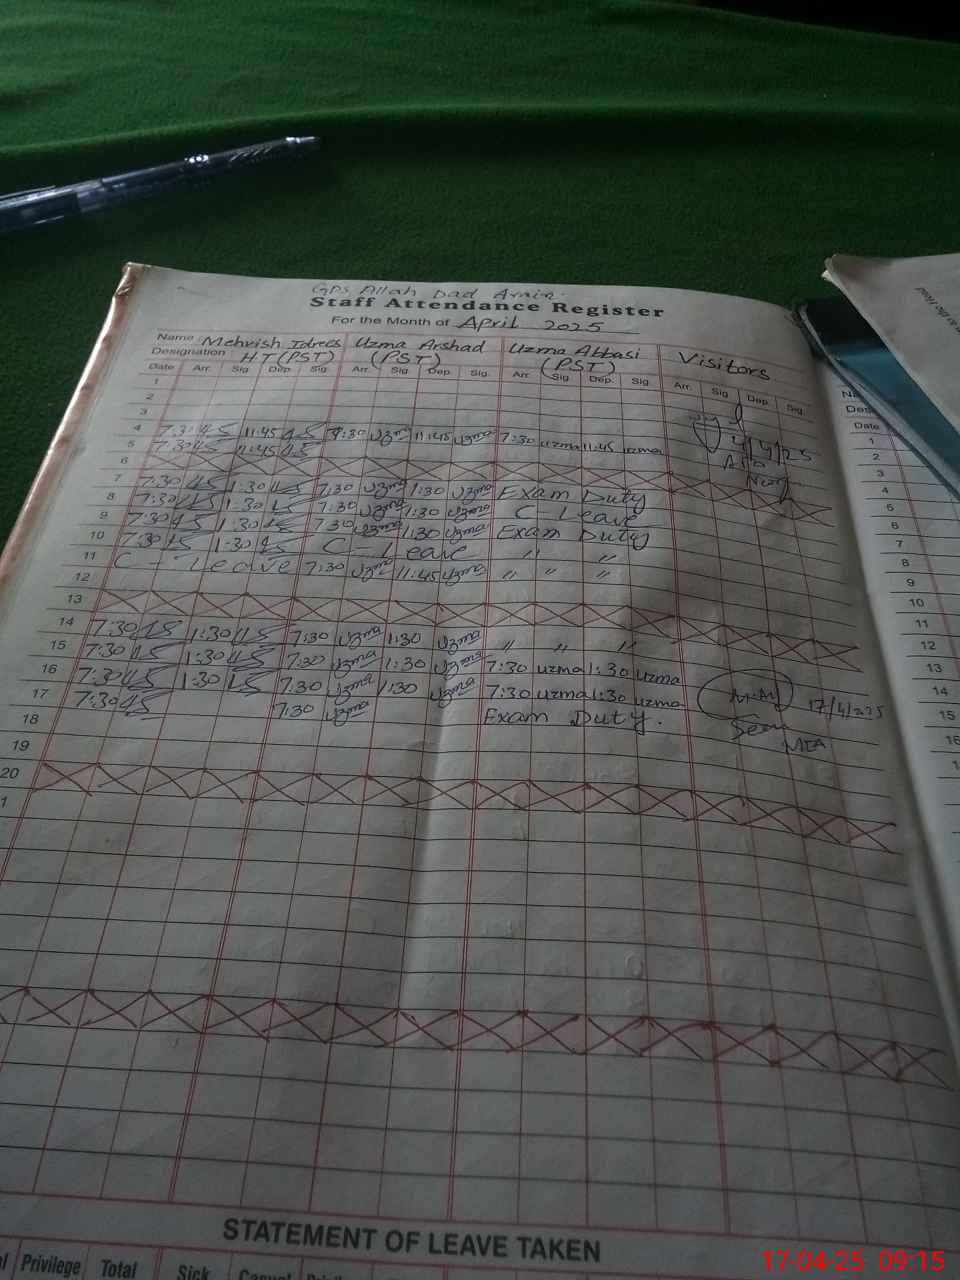 GPS Allah Dad Arain.
Staff Attendance Register
For the Month of April 2025
Name Mehvish Idrees Uzma Arshad Uzma Abbasi Visitors
Designation H.T(PST) (PST) (PST)
Date Arr. Sig. Dep. Sig. Arr. Sig. Dep. Sig. Arr. Sig. Dep. Sig. Arr. Sig. Dep. Sig.
1
2
3
4 7:30 11:45 7:30 Uzma 11:45 Uzma 7:30 uzma 11:45 uzma 4/4/25
5 7:30 11:45
6
7 7:30 1:30 7:30 Uzma 1:30 Uzma Exam Duty
8 7:30 1:30 7:30 Uzma 1:30 Uzma C - Leave
9 7:30 1:30 7:30 Uzma 1:30 Uzma Exam Duty
10 7:30 1:30 C - Leave " "
11 C - Leave 7:30 Uzma 11:45 Uzma " " "
12
13
14 7:30 1:30 7:30 Uzma 1:30 Uzma " " "
15 7:30 1:30 7:30 Uzma 1:30 Uzma 7:30 uzma 1:30 uzma
16 7:30 1:30 7:30 Uzma 1:30 Uzma 7:30 uzma 1:30 uzma 17/4/25
17 7:30 7:30 Uzma Exam Duty. MEA
18
19
20
1
STATEMENT OF LEAVE TAKEN
Privilege Total Sick Casual
Date
1
2
3
4
5
6
7
8
9
10
11
12
13
14
15
16
17-04-25 09:15